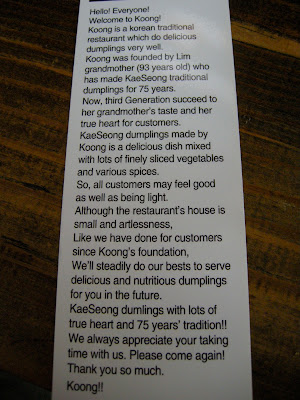 Hello! Everyone!
Welcome to Koong!
Koong is a korean traditional
restaurant which do delicious
dumplings very well.
Koong was founded by Lim
grandmother (93 years old) who
has made KaeSeong traditional
dumplings for 75 years.
Now, third Generation succeed to
her grandmother's taste and her
true heart for customers.
KaeSeong dumplings made by
Koong is a delicious dish mixed
with lots of finely sliced vegetables
and various spices.
So, all customers may feel good
as well as being light.
Although the restaurant's house is
small and artlessness,
Like we have done for customers
since Koong's foundation,
We'll steadily do our bests to serve
delicious and nutritious dumplings
for you in the future.
KaeSeong dumlings with lots of
true heart and 75 years' tradition!!
We always appreciate your taking
time with us. Please come again!
Thank you so much.
Koong!!